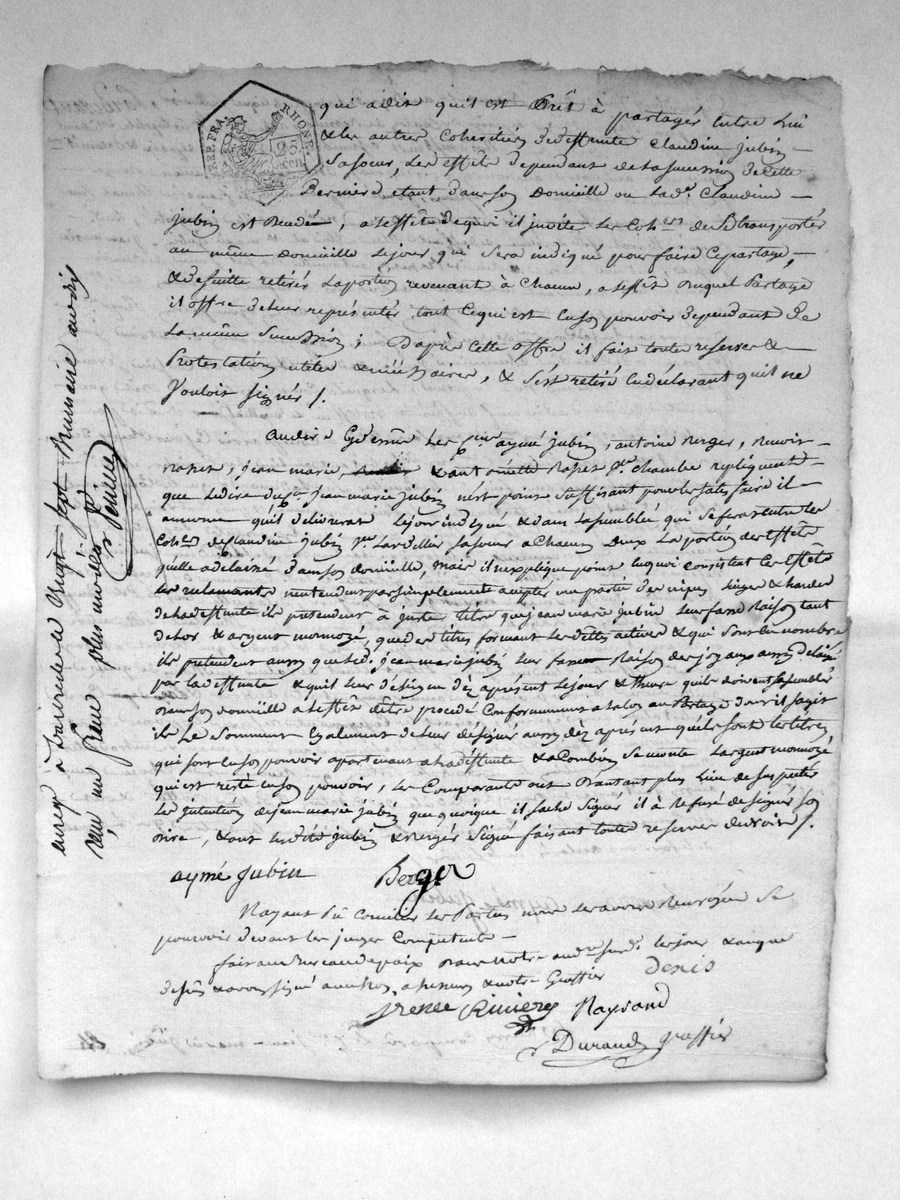 REP. FRA. RHONE
25. Cen
qui a dit qu'il est Prêt à partager entre Lui
& les autres Coheritiers de deffunte Claudine jubin
Sa soeur, Les effets dependant de la succession de Cette
Derniere étant dans son Domicille ou Lad. Claudine
jubin est Decedée, a l'effet de quoi il invite Les Cohers de Se transporter
au même domicille Le jour qui Sera indiqué pour faire Ce partage,
& de suitte retirer La portion revenant à Chacun, a l'effet duquel Partage
il offre de leur représenter tout Ce qui est en son pouvoir dependant de
La même Succession ; D'après Cette offre il fait toute reserves &
Protestations utiles & nécessaires, & s'est retiré en déclarant qu'il ne
Vouloit Signér /.
aymé jubin, antoine Berger,
jean marie & ant Chambe repliquent
que Le dire du Cn. jean marie jubin n'est point Suffisant pour les satisfaire il
annonce qu'il délivrera Le jour indiqué & dans L'assemblée qui Se fera entre Les
Cohers de Claudine jubin Sa soeur a Chacun D'eux La portion des Effets
qu'elle a delaissé dans son domicille, mais il n'explique point en quoi Consistent Ces Effets
Les reclamants n'entendent pas simplement accepter une partie des nipes linges & hardes
de la deffunte ils pretendent à juste titre que jean marie jubin leur fasse Raison tant
de l'or & argent monoyé, que des titres formant Les dettes actives & qui Sont en nombre
ils pretendent aussi que led. jean marie jubin leur fasse Raison des joyaux aussi délaissé
par La deffunte & qu'il leur désigne dez apresent Le jour & l'heure qu'ils doivent s'assembler
Dans son domicille a l'effet d'être procedé Conformement a la loi au Partage dont il s'agit
ils Le Somment également de leur désigner aussi dèz apresent quels sont Les titres
qui sont en son pouvoir apartenant a la deffunte & a Combien Se monte L'argent monoyé
qui est resté en son pouvoir, Les Comparants ont D'autant plus Lieu de Suspecter
Les intentions de jean marie jubin que quoique il sache Signer il a Refusé de Signer son
Dire, & ont Lesdits jubin & Berger Signé faisant toute reserves de droit /.
aymé jubin Berger
N'ayant Pû Concilier Les Parties nous Les avons Renvoyées Se
pourvoir devant Les juges Competents
fait au Bureau de paix Dans notre Les jour & an que
dessus & avons Signé avec Nos assesseurs & notre Greffier Denis
Rivieres Naysand
Durand greffier
enreg. à Le Vingt Sept Brumaire an dix
Reçu un franc plus